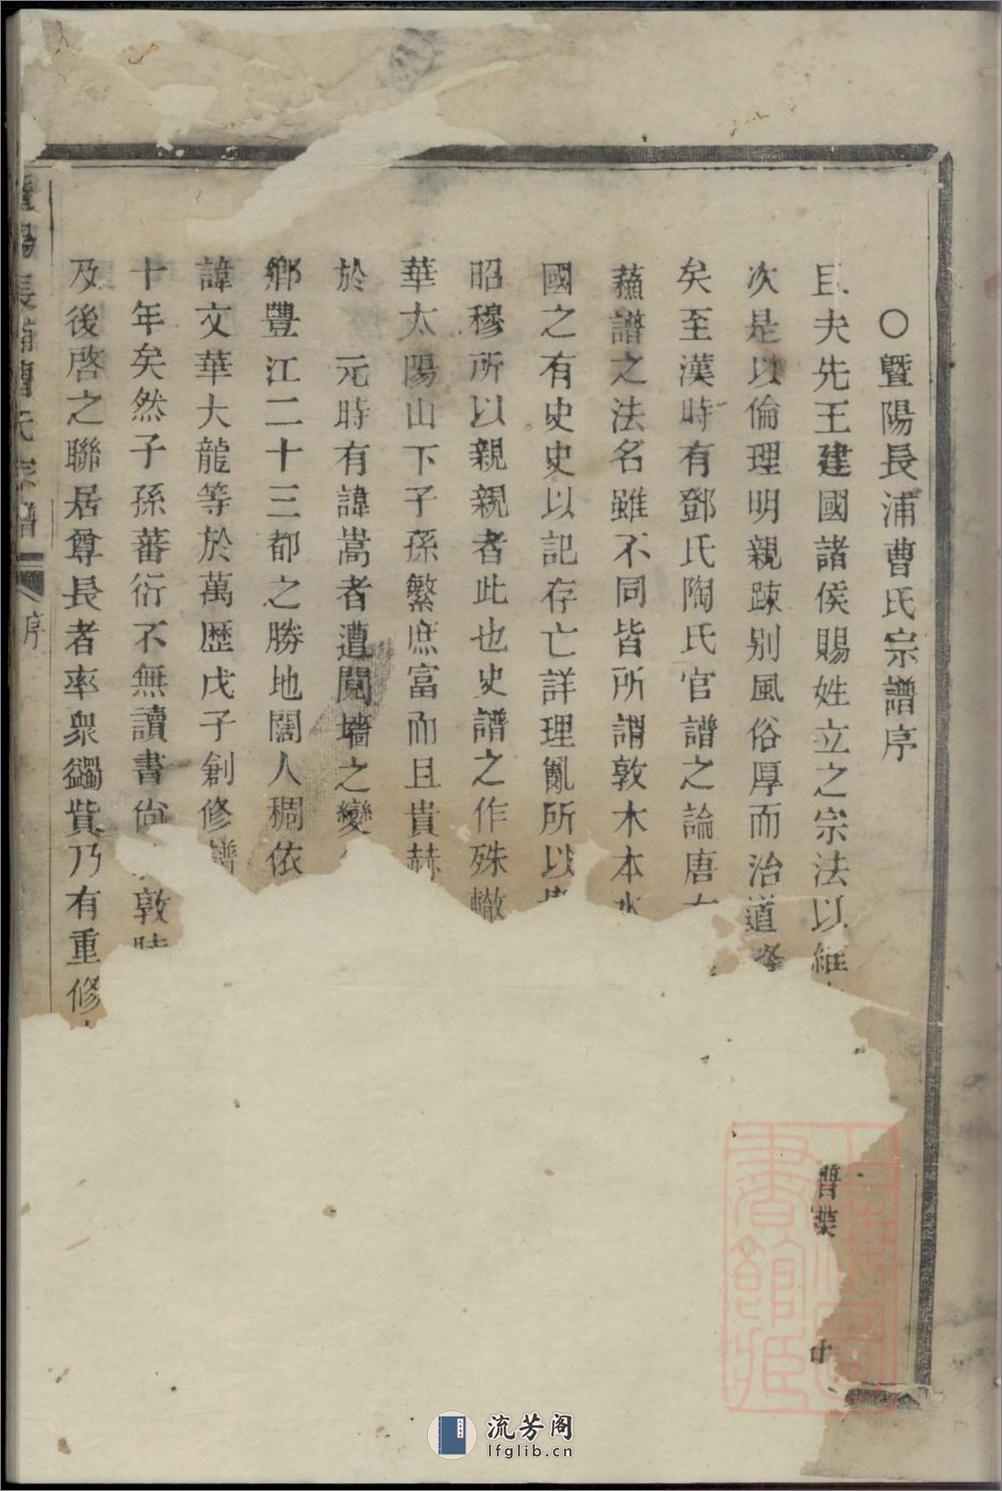 〇暨陽長浦曹氏宗譜序
且夫先王建國諸侯賜姓立之宗法以維
譜牒
次是以倫理明親踈别風俗厚而治道隆
矣至漢時有鄧氏陶氏官譜之論唐
蘓譜之法名雖不同皆所謂敦木本水
國之有史史以記存亡詳理亂所以
昭穆所以親親者此也史譜之作殊轍
華太陽山下子孫繁庶富而且貴赫
於 元時有諱嵩者遭鬩墻之變
鄉豐江二十三都之勝地闊人稠依
諱文華大龍等於萬歷戊子創修譜
十年矣然子孫蕃衍不無讀書尙 敦睦
及後啓之聯居尊長者率衆蠲貲乃有重修
暨陽長浦曹氏宗譜
序
流芳阁
lfglib.cn